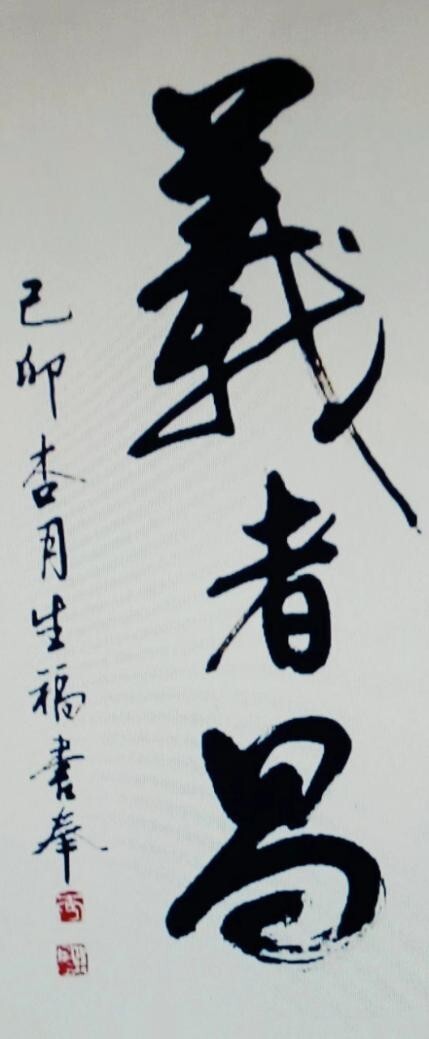 義者昌
己卯杏月生福書奉